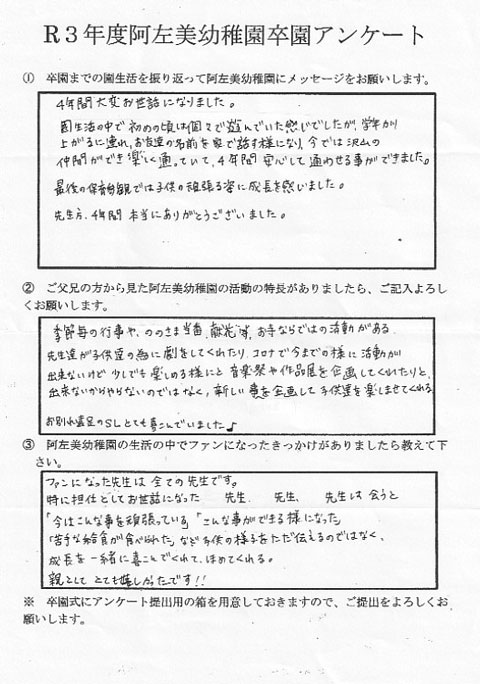 R3年度阿左美幼稚園卒園アンケート
① 卒園までの園生活を振り返って阿左美幼稚園にメッセージをお願いします。
4年間大変お世話になりました。
園生活の中で初めの頃は個々で遊んでいた感じでしたが、学年が
上がるに連れ、お友達の名前を家で話す様になり、今では沢山の
仲間ができ楽しく通っていて、4年間安心して通わせる事ができました。
最後の保育参観では子供の頑張る姿に成長を感いました。
先生方、4年間本当にありがとうございました。
② ご父兄の方から見た阿左美幼稚園の活動の特長がありましたら、ご記入よろし
くお願いします。
季節毎の行事や、ののさま当番、献花等、お寺ならではの活動がある。
先生達が子供達の為に劇をしてくれたり、コロナで今までの様に活動が
出来ないけど少しでも楽しめる様にと音楽祭や作品展を企画してくれたりと、
出来ないからやらないのではなく、新しい事を企画して子供達を楽しませてくれる。
お別れ遠足のSLとても喜こんでいました♪
③ 阿左美幼稚園の生活の中でファンになったきっかけがありましたら教えて下
さい。
ファンになった先生は全ての先生です。
特に担任としてお世話になった 先生、 先生、 先生は会うと
「今はこんな事を頑張っている」「こんな事ができる様になった」
「苦手な給食が食べられた」など子供の様子をただ伝えるのではなく、
成長を一緒に喜こんでくれて、ほめてくれる。
親としてとても嬉しかったです!!
※ 卒園式にアンケート提出用の箱を用意しておきますので、ご提出をよろしくお
願いします。